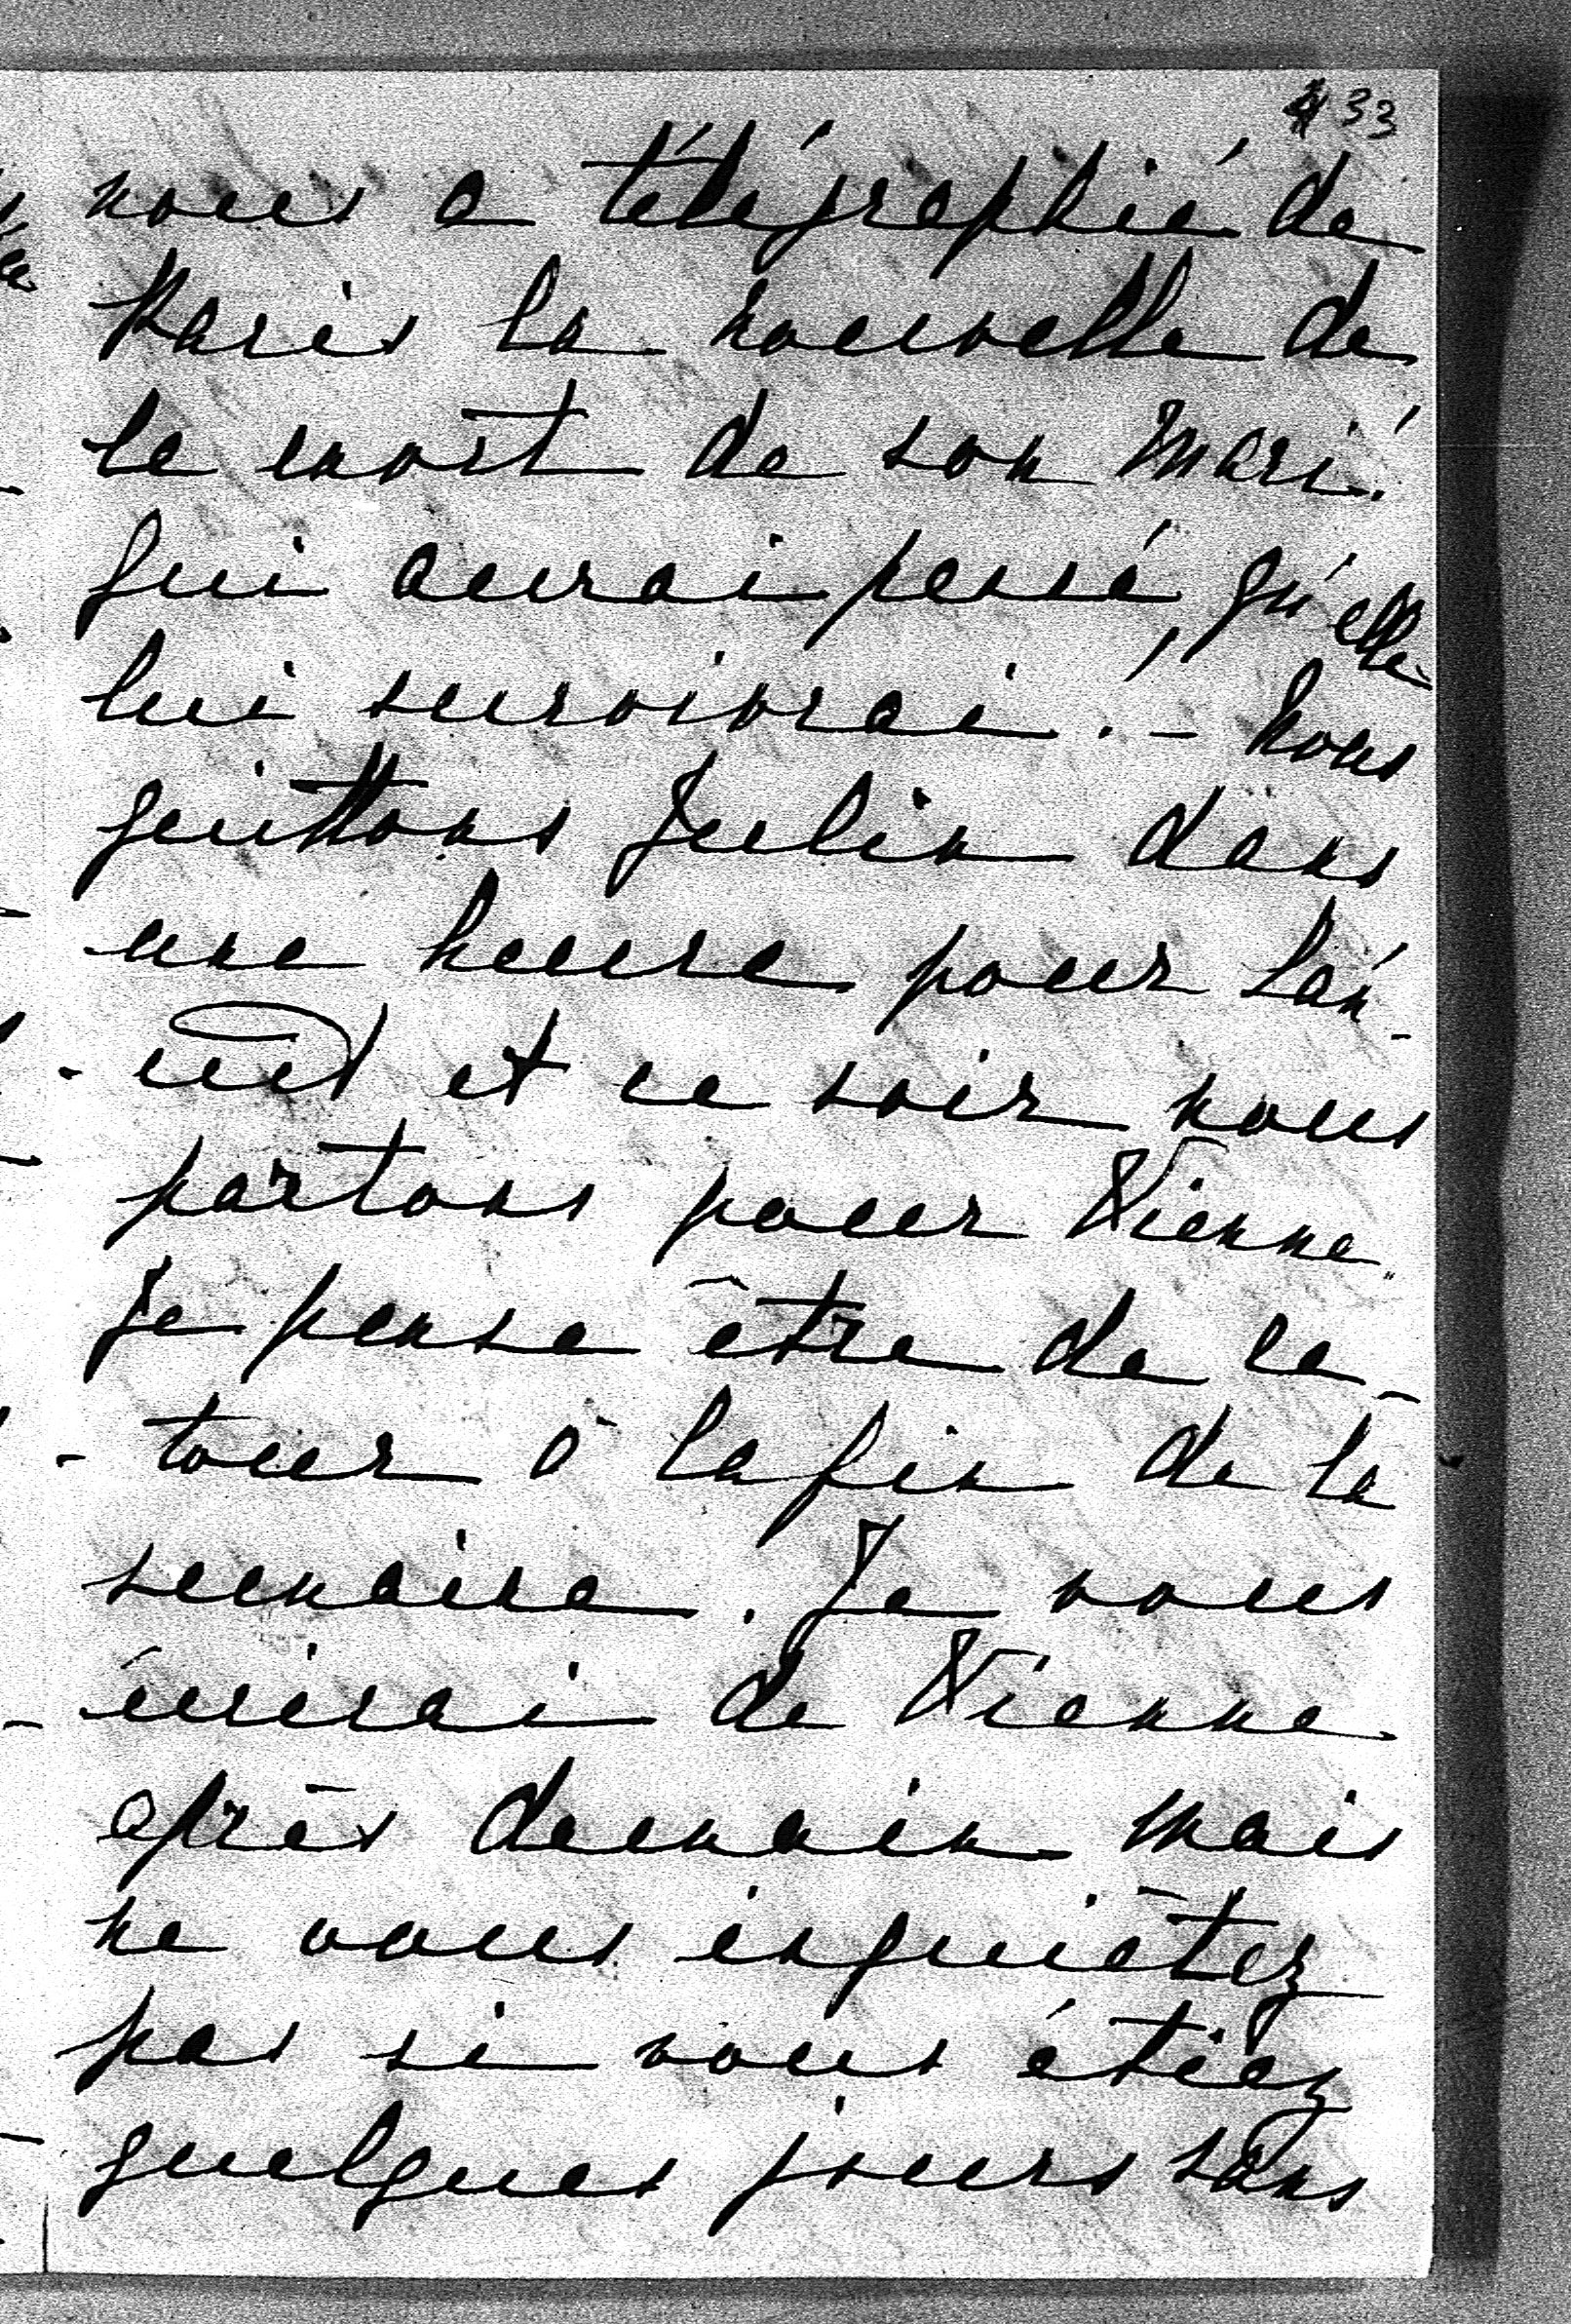 33
nous a télégraphié de
Paris la nouvelle de
la mort de son mari!
Qui aurai pensé, qu'elle
lui survivrai! – Nous
quittons Julin dans
une heure pour Lán-
-cut et ce soir nous
partons pour Vienne.
Je pense être de re-
-tour à la fin de la
semaine. Je vous
écrirai de Vienne
après demain mais
ne vous inquiètez
pas si vous étiez
quelques jours sans